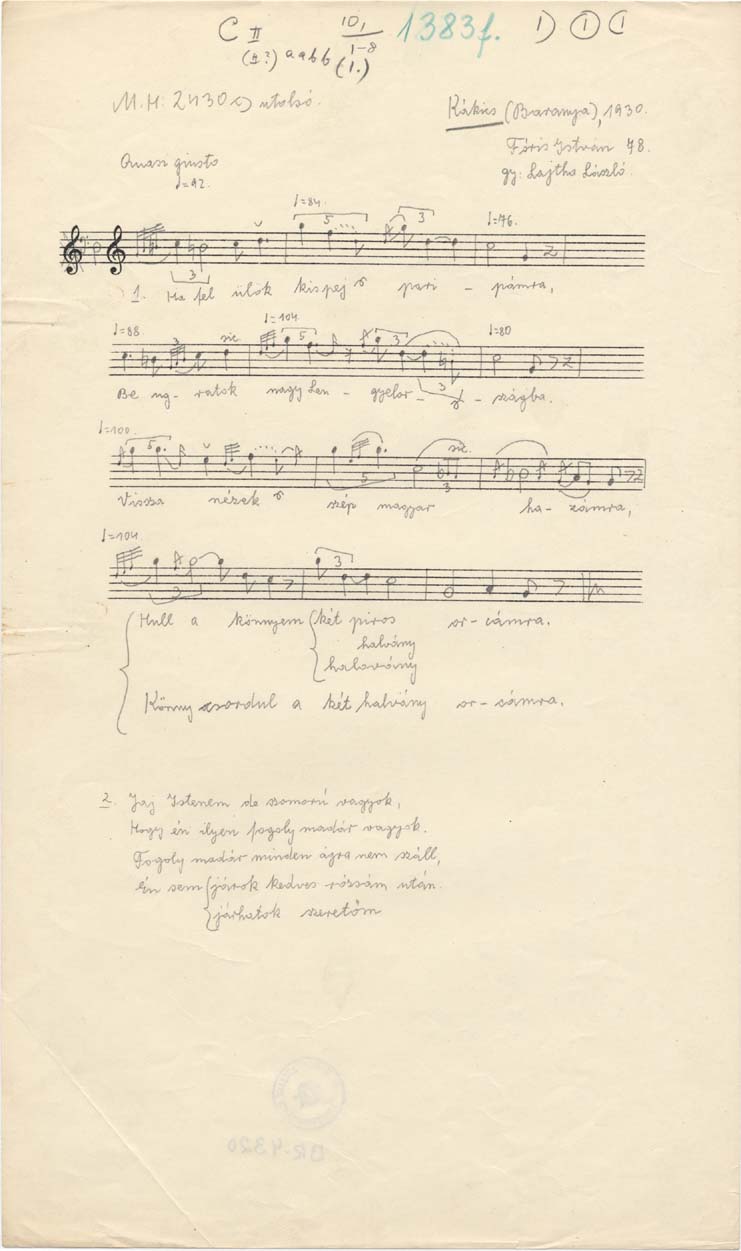 C II 10, 1383f. 1) ① (1
(II?) aabb 1-8
(1.)
M.H: 2430 c) utolsó.
Kákics (Baranya), 1930.
Quasi giusto
Fóris István 78.
♩=92.
gy: Lajtha László.
♩=84.
5 3 ♩=76.
3
1. Ha fel ülök kispej pari - pámra,
♩=88. 3 sic. ♩=104. 5 3 ♩=80
3
Be ug- ratok nagy Len - gyelor- szágba.
♩=100.
5 sic.
5 3
Vissza nézek szép magyar ha- zámra,
♩=104.
3
3
Hull a könnyem két piros or- cámra.
halvány
halavány
Könny csordul a két halvány or- cámra.
2. Jaj Istenem de szomorú vagyok,
Hogy én ilyen fogoly madár vagyok.
Fogoly madár minden ágra nem száll,
Én sem járok kedves rózsám után.
járhatok szeretőm
BR-4320